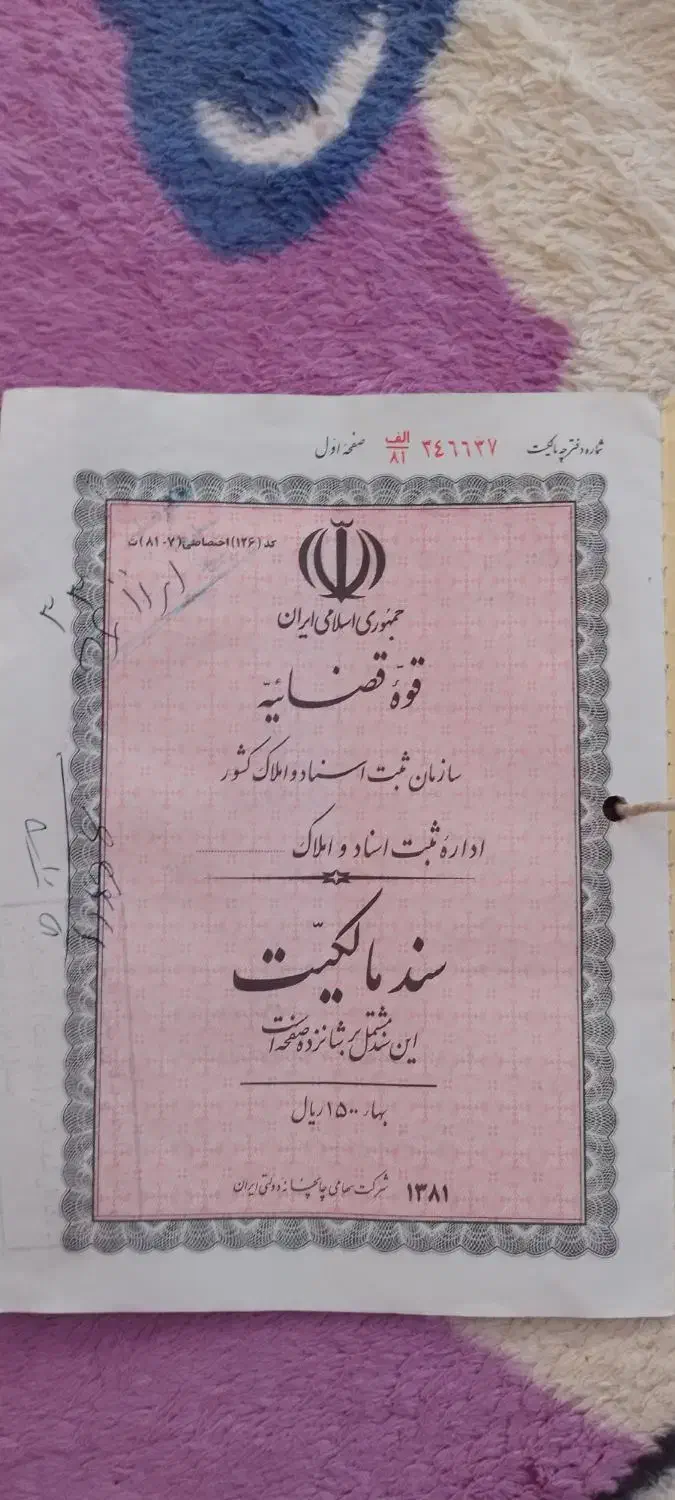 شماره دفترچه مالکیت ٣٤٦٦٣٧ الف/٨١ صفحهٔ اول
کد (۱۲۶) اختصاصی (۷-۸۱) ث
جمهوری اسلامی ایران
قوّهٔ قضائیّه
سازمان ثبت اسناد و املاک کشور
ادارهٔ ثبت اسناد و املاک ....................
سند مالکیّت
این سند مشتمل بر شانزده صفحه است
بهاء ۱۵۰۰ ریال
۱۳۸۱ شرکت سهامی چاپخانه دولتی ایران